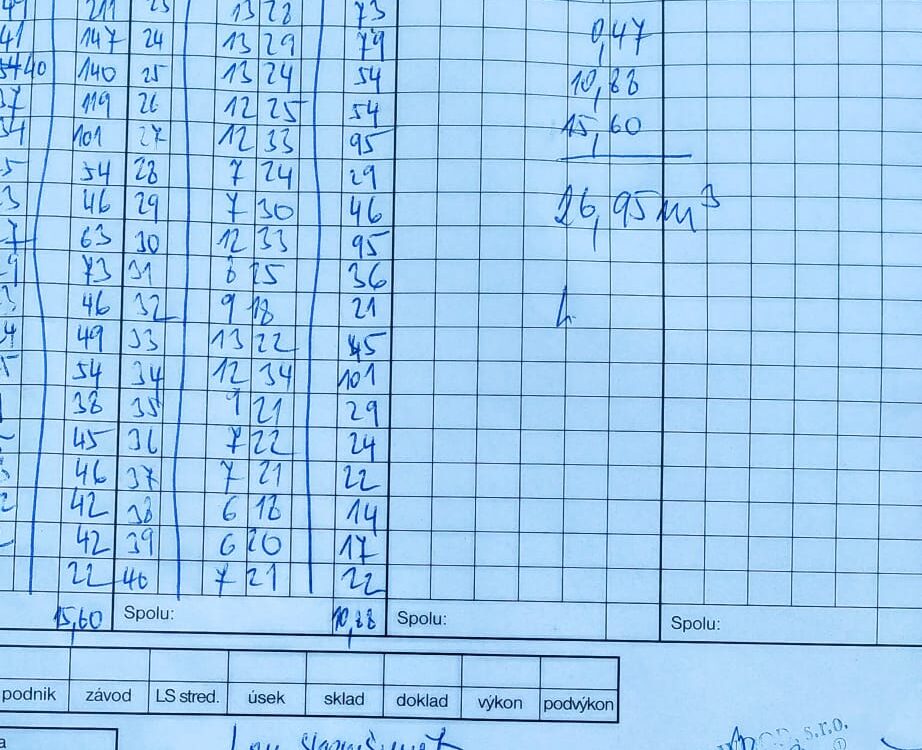 211 23 13 28 73
41 147 24 13 29 79 0,47
40 140 25 13 24 54 10,88
37 119 26 12 25 54
34 101 27 12 33 95 15,60
54 28 7 24 29
46 29 7 30 46 26,95 m³
63 30 12 33 95
73 31 8 25 36
46 32 9 18 21
49 33 13 22 45
54 34 12 34 101
38 35 9 21 29
45 36 7 22 24
46 37 7 21 22
42 38 6 18 14
42 39 6 20 17
22 40 7 21 22
15,60 Spolu: 10,88 Spolu: Spolu:
podnik závod LS stred. úsek sklad doklad výkon podvýkon
s.r.o.